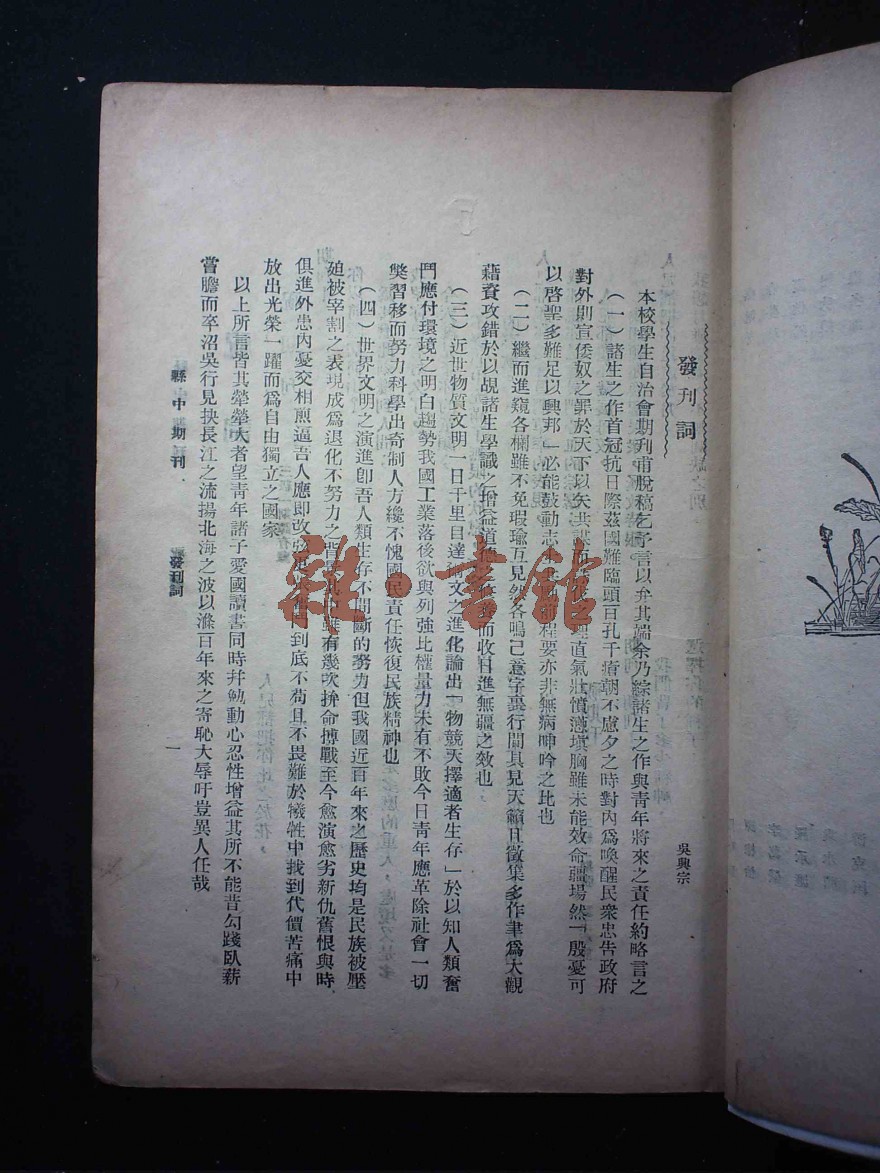 發刊詞
吳興宗
本校學生自治會期刊甫脫稿乞予言以弁其端余乃綜諸生之作與青年將來之責任約略言之
（一）諸生之作首冠抗日際茲國難臨頭百孔千瘡朝不慮夕之時對內爲喚醒民衆忠告政府
對外則宣倭奴之罪於天下以矢共 直氣壯憤懣塡胸雖未能效命疆場然「殷憂可
以啓聖多難足以興邦」必能鼓動志 程要亦非無病呻吟之比也
（二）繼而進窺各欄雖不免瑕瑜互見然各鳴己意字裏行間具見天籟且徵集多作聿爲大觀
藉資攻錯於以覘諸生學識之增益道 而收日進無疆之效也
（三）近世物質文明一日千里自達爾文之進化論出「物競天擇適者生存」於以知人類奮
鬥應付環境之明白趨勢我國工業落後欲與列強比權量力未有不敗今日青年應革除社會一切
獘習移而努力科學出奇制人方纔不愧國民責任恢復民族精神也
（四）世界文明之演進卽吾人類生存不間斷的努力但我國近百年來之歷史均是民族被壓
廹被宰割之表現成爲退化不努力之背景 雖有幾次拚命搏戰至今愈演愈劣新仇舊恨與時
俱進外患內憂交相煎逼吾人應卽改 到底不苟且不畏難於犧牲中找到代價苦痛中
放出光榮一躍而爲自由獨立之國家
以上所言皆其犖犖大者望青年諸子愛國讀書同時幷勉動心忍性增益其所不能昔勾踐臥薪
嘗膽而卒沼吳行見抉長江之流揚北海之波以滌百年來之奇恥大辱吁豈異人任哉
縣中期刊
發刊詞
一
雜·書館